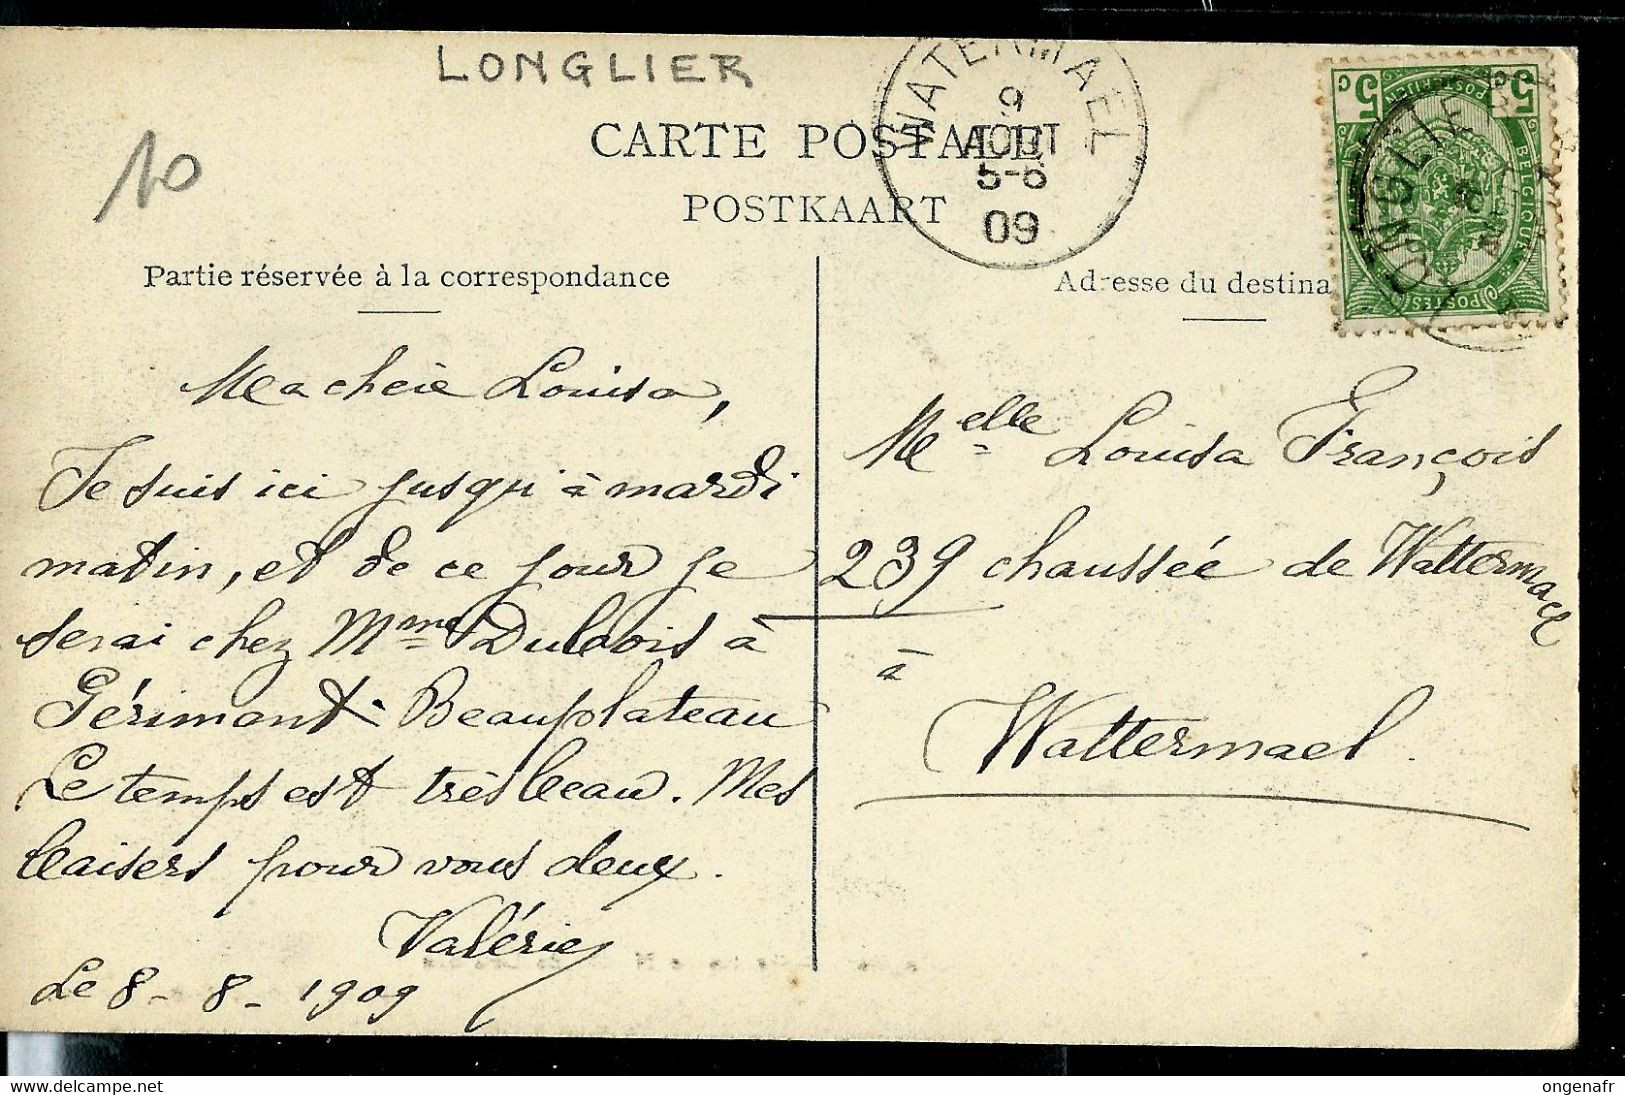 LONGLIER
10
CARTE POSTALE
POSTKAART
WATERMAEL
9
AOUT
5-6
09
5c 5c
POSTERIJEN
BELGIQUE
POSTES
LONGLIER
Partie réservée à la correspondance
Adresse du destina
Ma chère Louisa,
Je suis ici jusqu'à mardi
matin, et de ce jour je
serai chez Mme Dubois à
Gérimont-Beauplateau
Le temps est très beau. Mes
baisers pour vous deux.
Valérie
Le 8-8-1909
Melle Louisa François
239 chaussée de Wattermael
à
Wattermael.
ongenafr